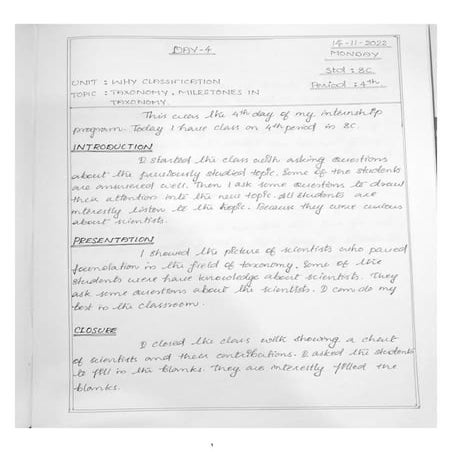 DAY-4
14-11-2022
MONDAY
Std : 8C
Period : 4th
UNIT : WHY CLASSIFICATION
TOPIC : TAXONOMY, MILESTONES IN
TAXONOMY.
This was the 4th day of my internship
program. Today I have class on 4th period in 8C
INTRODUCTION
I started the class with asking questions
about the previously studied topic. Some of the students
are answered well. Then I ask some questions to draw
their attention into the new topic. All students are
interestly listen to the topic. Because they were curious
about scientists.
PRESENTATION
I showed the picture of scientists who paved
foundation in the field of taxonomy. Some of the
students were have knowledge about scientists. They
ask some questions about the scientists. I can do my
best in the classroom.
CLOSURE
I closed the class with showing a chart
of scientists and their contributions. I asked the students
to fill in the blanks. They are interestly filled the
blanks.